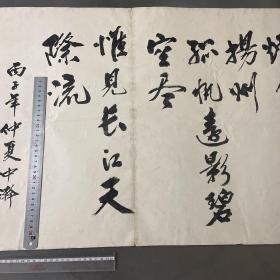 揚州
孤帆遠影碧
空尽
惟见长江天
際流
丙子年仲夏中瀚